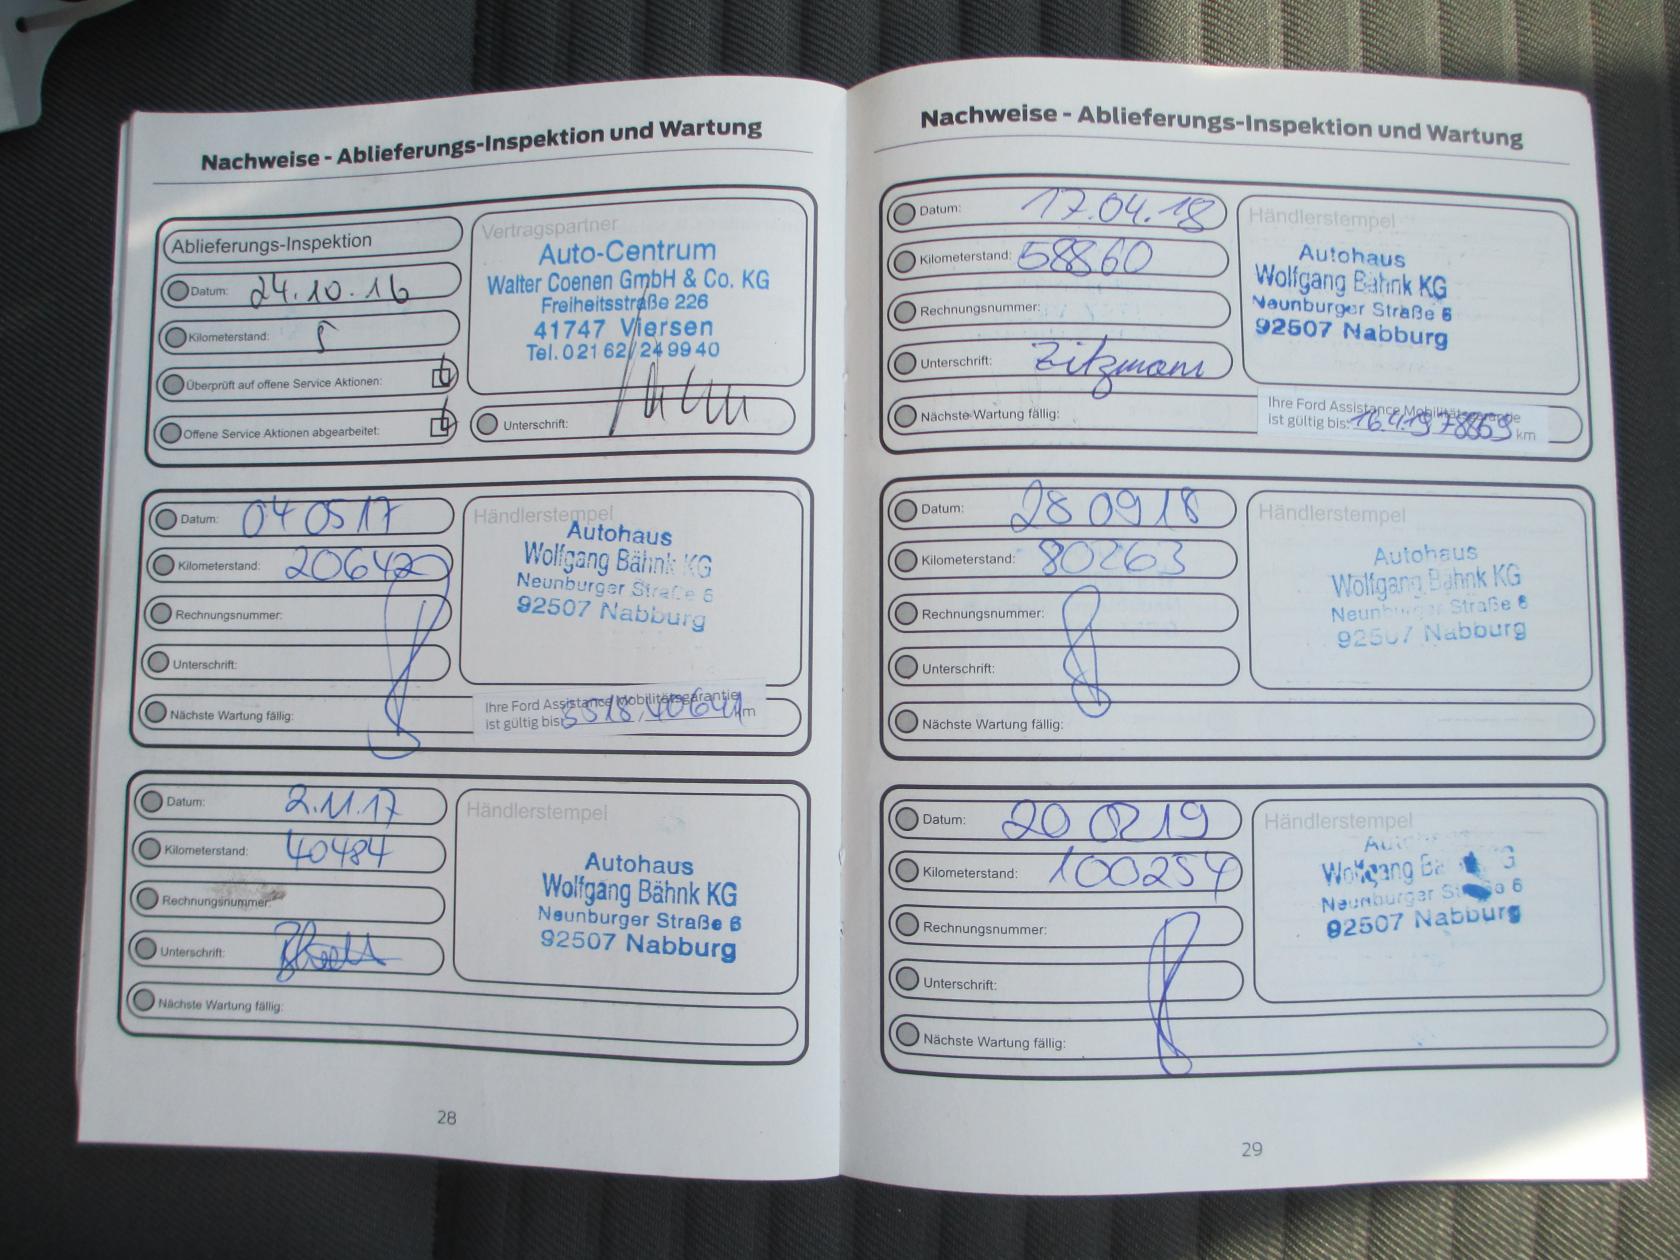 Nachweise - Ablieferungs-Inspektion und Wartung
Ablieferungs-Inspektion
Datum: 24.10.16
Kilometerstand: 5
Überprüft auf offene Service Aktionen:
Offene Service Aktionen abgearbeitet:
Vertragspartner
Auto-Centrum
Walter Coenen GmbH & Co. KG
Freiheitsstraße 226
41747 Viersen
Tel. 02162/249940
Unterschrift:
Datum: 040517
Kilometerstand: 20642
Rechnungsnummer:
Unterschrift:
Nächste Wartung fällig:
Händlerstempel
Autohaus
Wolfgang Bähnk KG
Neunburger Straße 6
92507 Nabburg
Ihre Ford Assistance Mobilitätsgarantie
ist gültig bis: 3518, 40641 km
Datum: 2.11.17
Kilometerstand: 40484
Rechnungsnummer:
Unterschrift:
Nächste Wartung fällig:
Händlerstempel
Autohaus
Wolfgang Bähnk KG
Neunburger Straße 6
92507 Nabburg
28
Nachweise - Ablieferungs-Inspektion und Wartung
Datum: 17.04.18
Kilometerstand: 58860
Rechnungsnummer:
Unterschrift: Zitzmann
Nächste Wartung fällig:
Händlerstempel
Autohaus
Wolfgang Bähnk KG
Neunburger Straße 6
92507 Nabburg
Ihre Ford Assistance Mobilitätsgarantie
ist gültig bis: 16.4.19 78859 km
Datum: 280918
Kilometerstand: 80263
Rechnungsnummer:
Unterschrift:
Nächste Wartung fällig:
Händlerstempel
Autohaus
Wolfgang Bähnk KG
Neunburger Straße 6
92507 Nabburg
Datum: 20 02 19
Kilometerstand: 100254
Rechnungsnummer:
Unterschrift:
Nächste Wartung fällig:
Händlerstempel
Wolfgang Bähnk KG
Neunburger Straße 6
92507 Nabburg
29